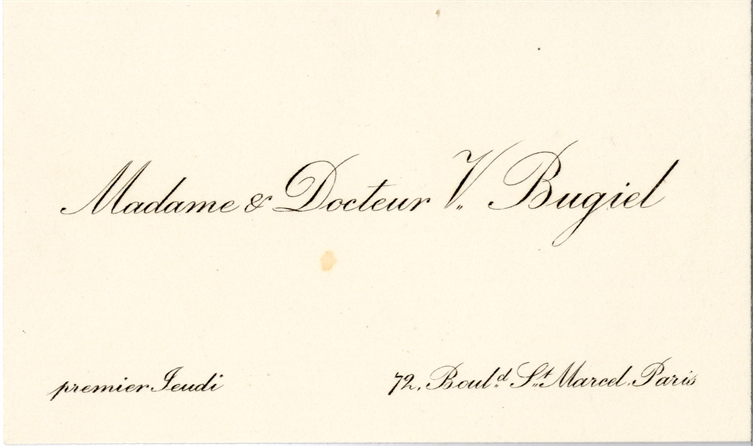 Madame & Docteur V. Bugiel
premier Jeudi
72, Boul.d S.t Marcel. Paris